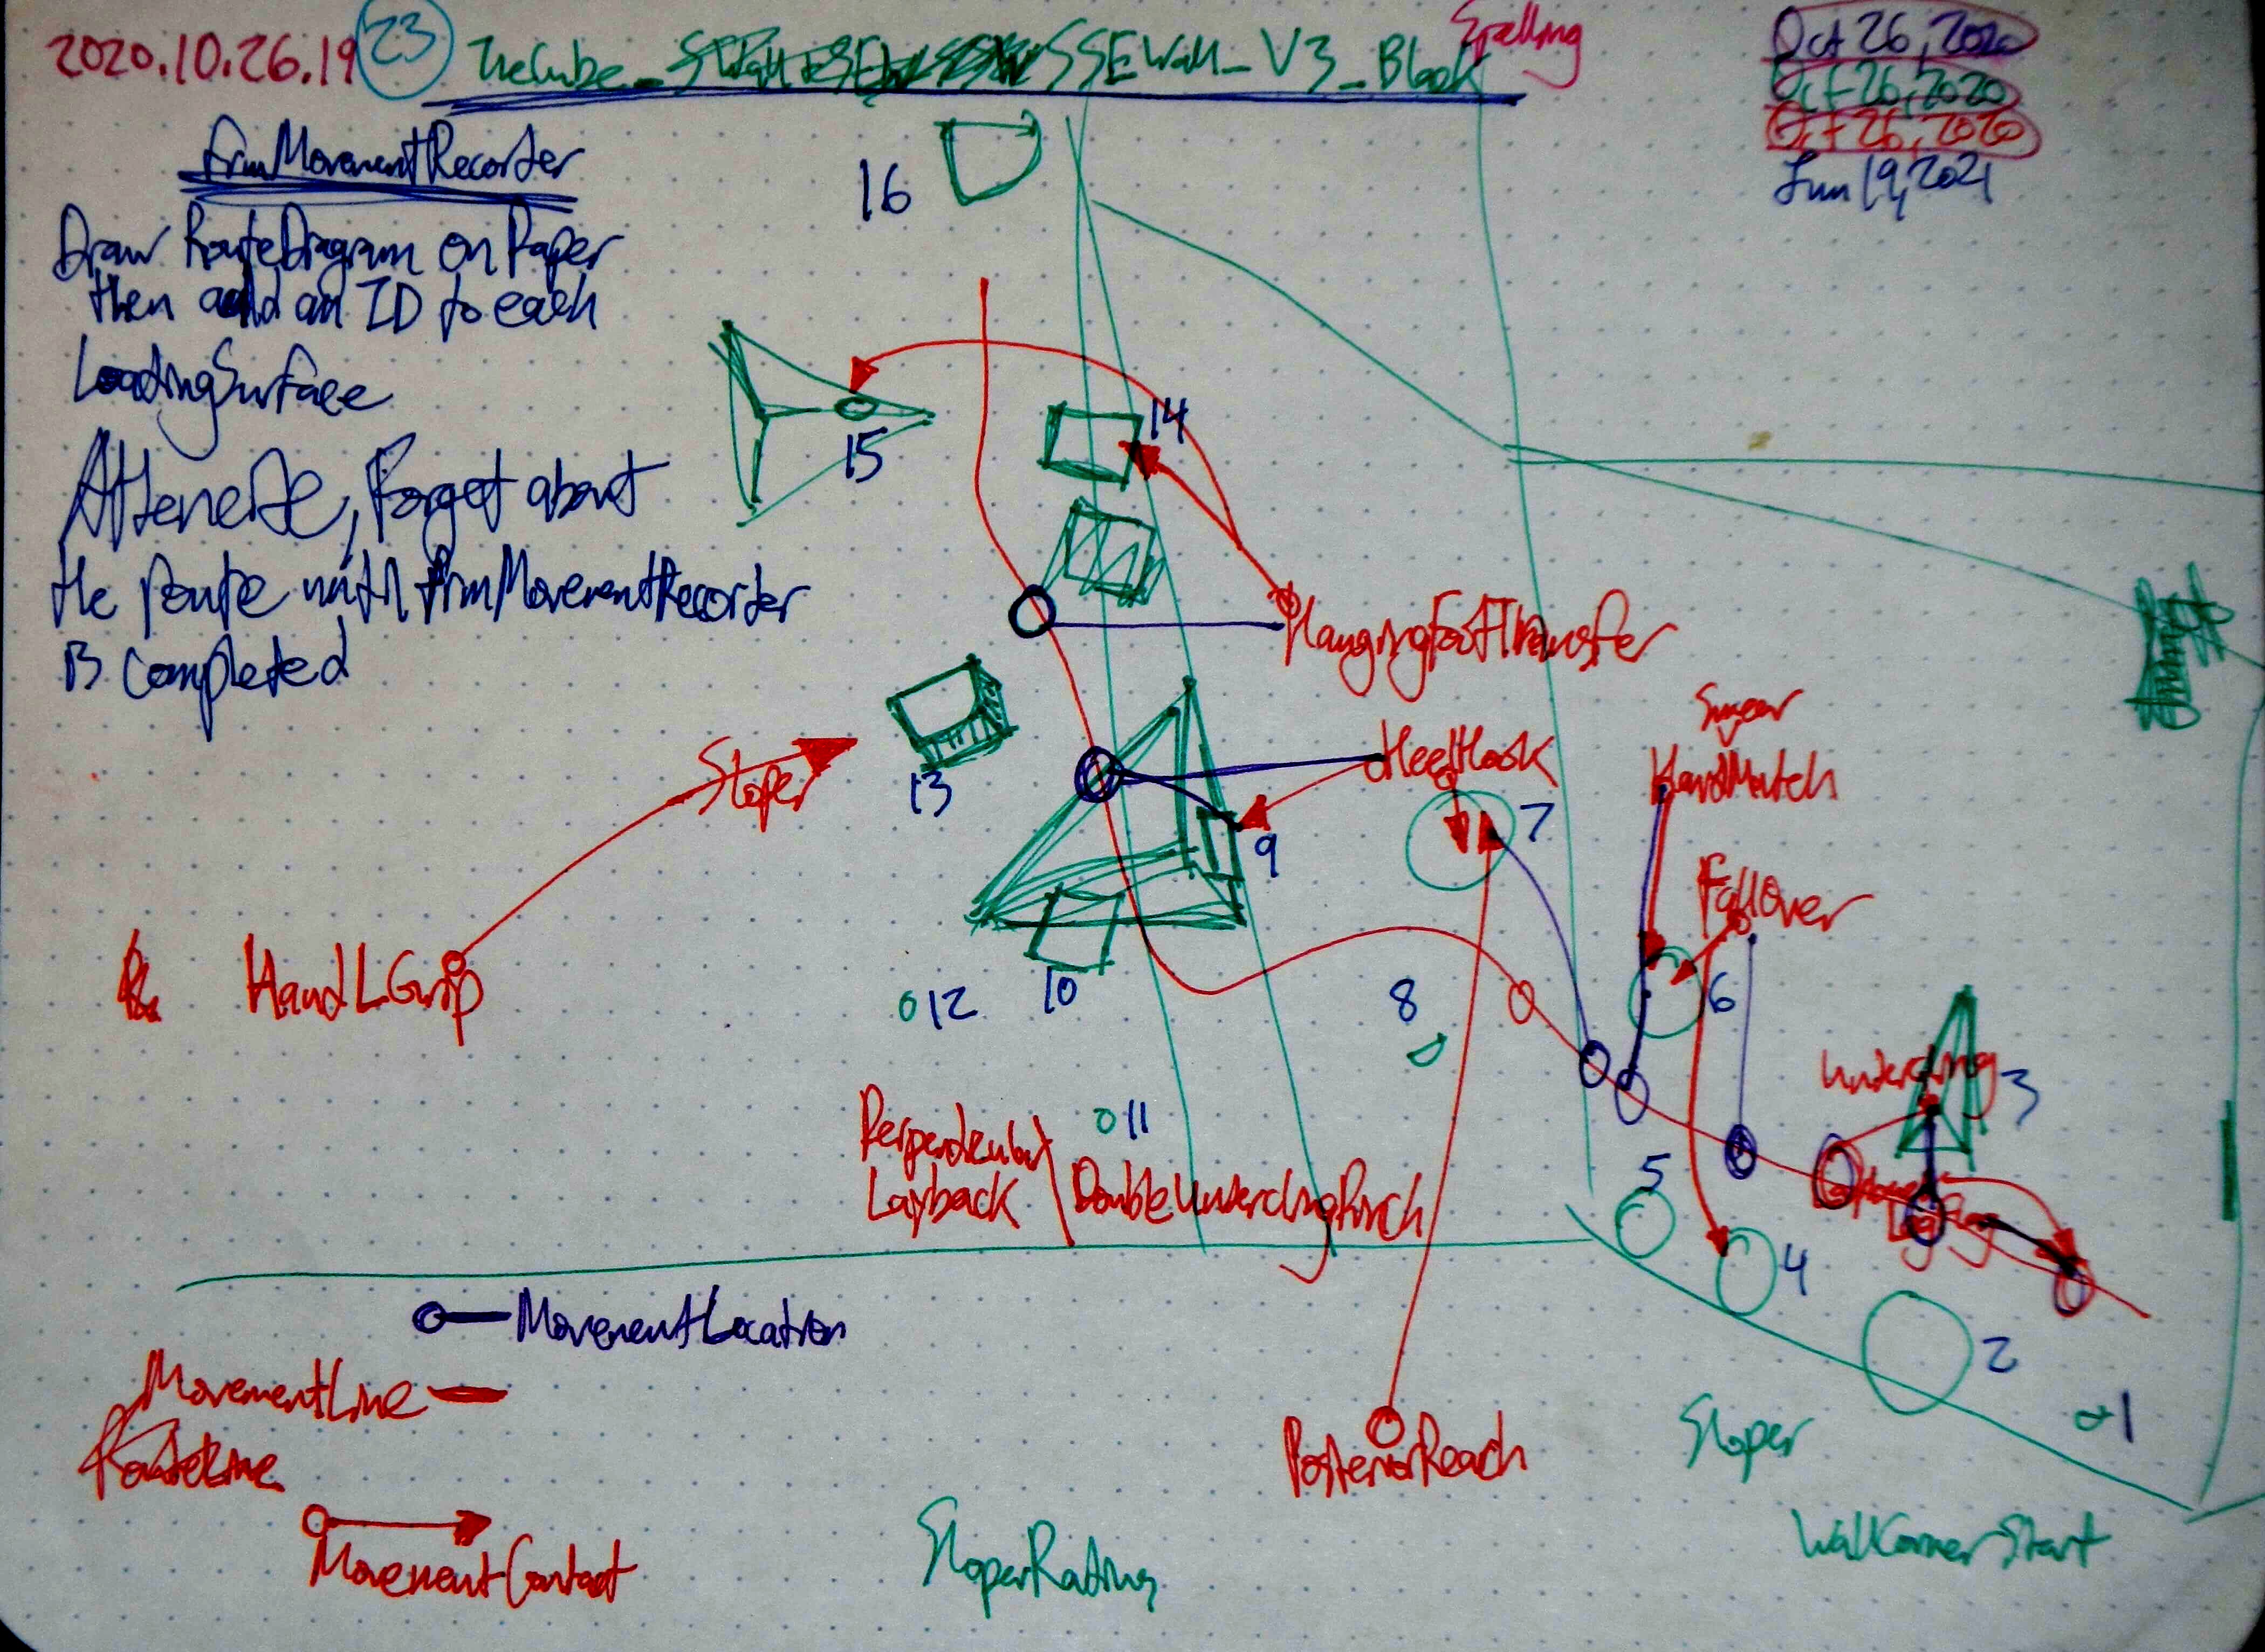 2020.10.26.19 23 TheCube_ SSEWall_V3_Black
Spelling
Oct 26, 2020
Oct 26, 2020
Oct 26, 2020
Jun 19, 2021
frmMovementRecorter
Draw RouteDiagram on Paper
then add an ID to each
LoadingSurface
Attenerte, Forget about
the route until frmMovementRecorder
is completed
16
14
15
HangingFootTransfer
Smear
HandMatch
HeelHook
Sloper
13
7
9
FallOver
HandLGrip
6
12
10
8
Undercling
3
11
Perpendicular
Layback
DoubleUnderclingPinch
5
LegFlag
4
2
1
MovementLocation
MovementLine
RouteLine
MovementContact
PosteriorReach
Sloper
SloperRating
WallCornerStart